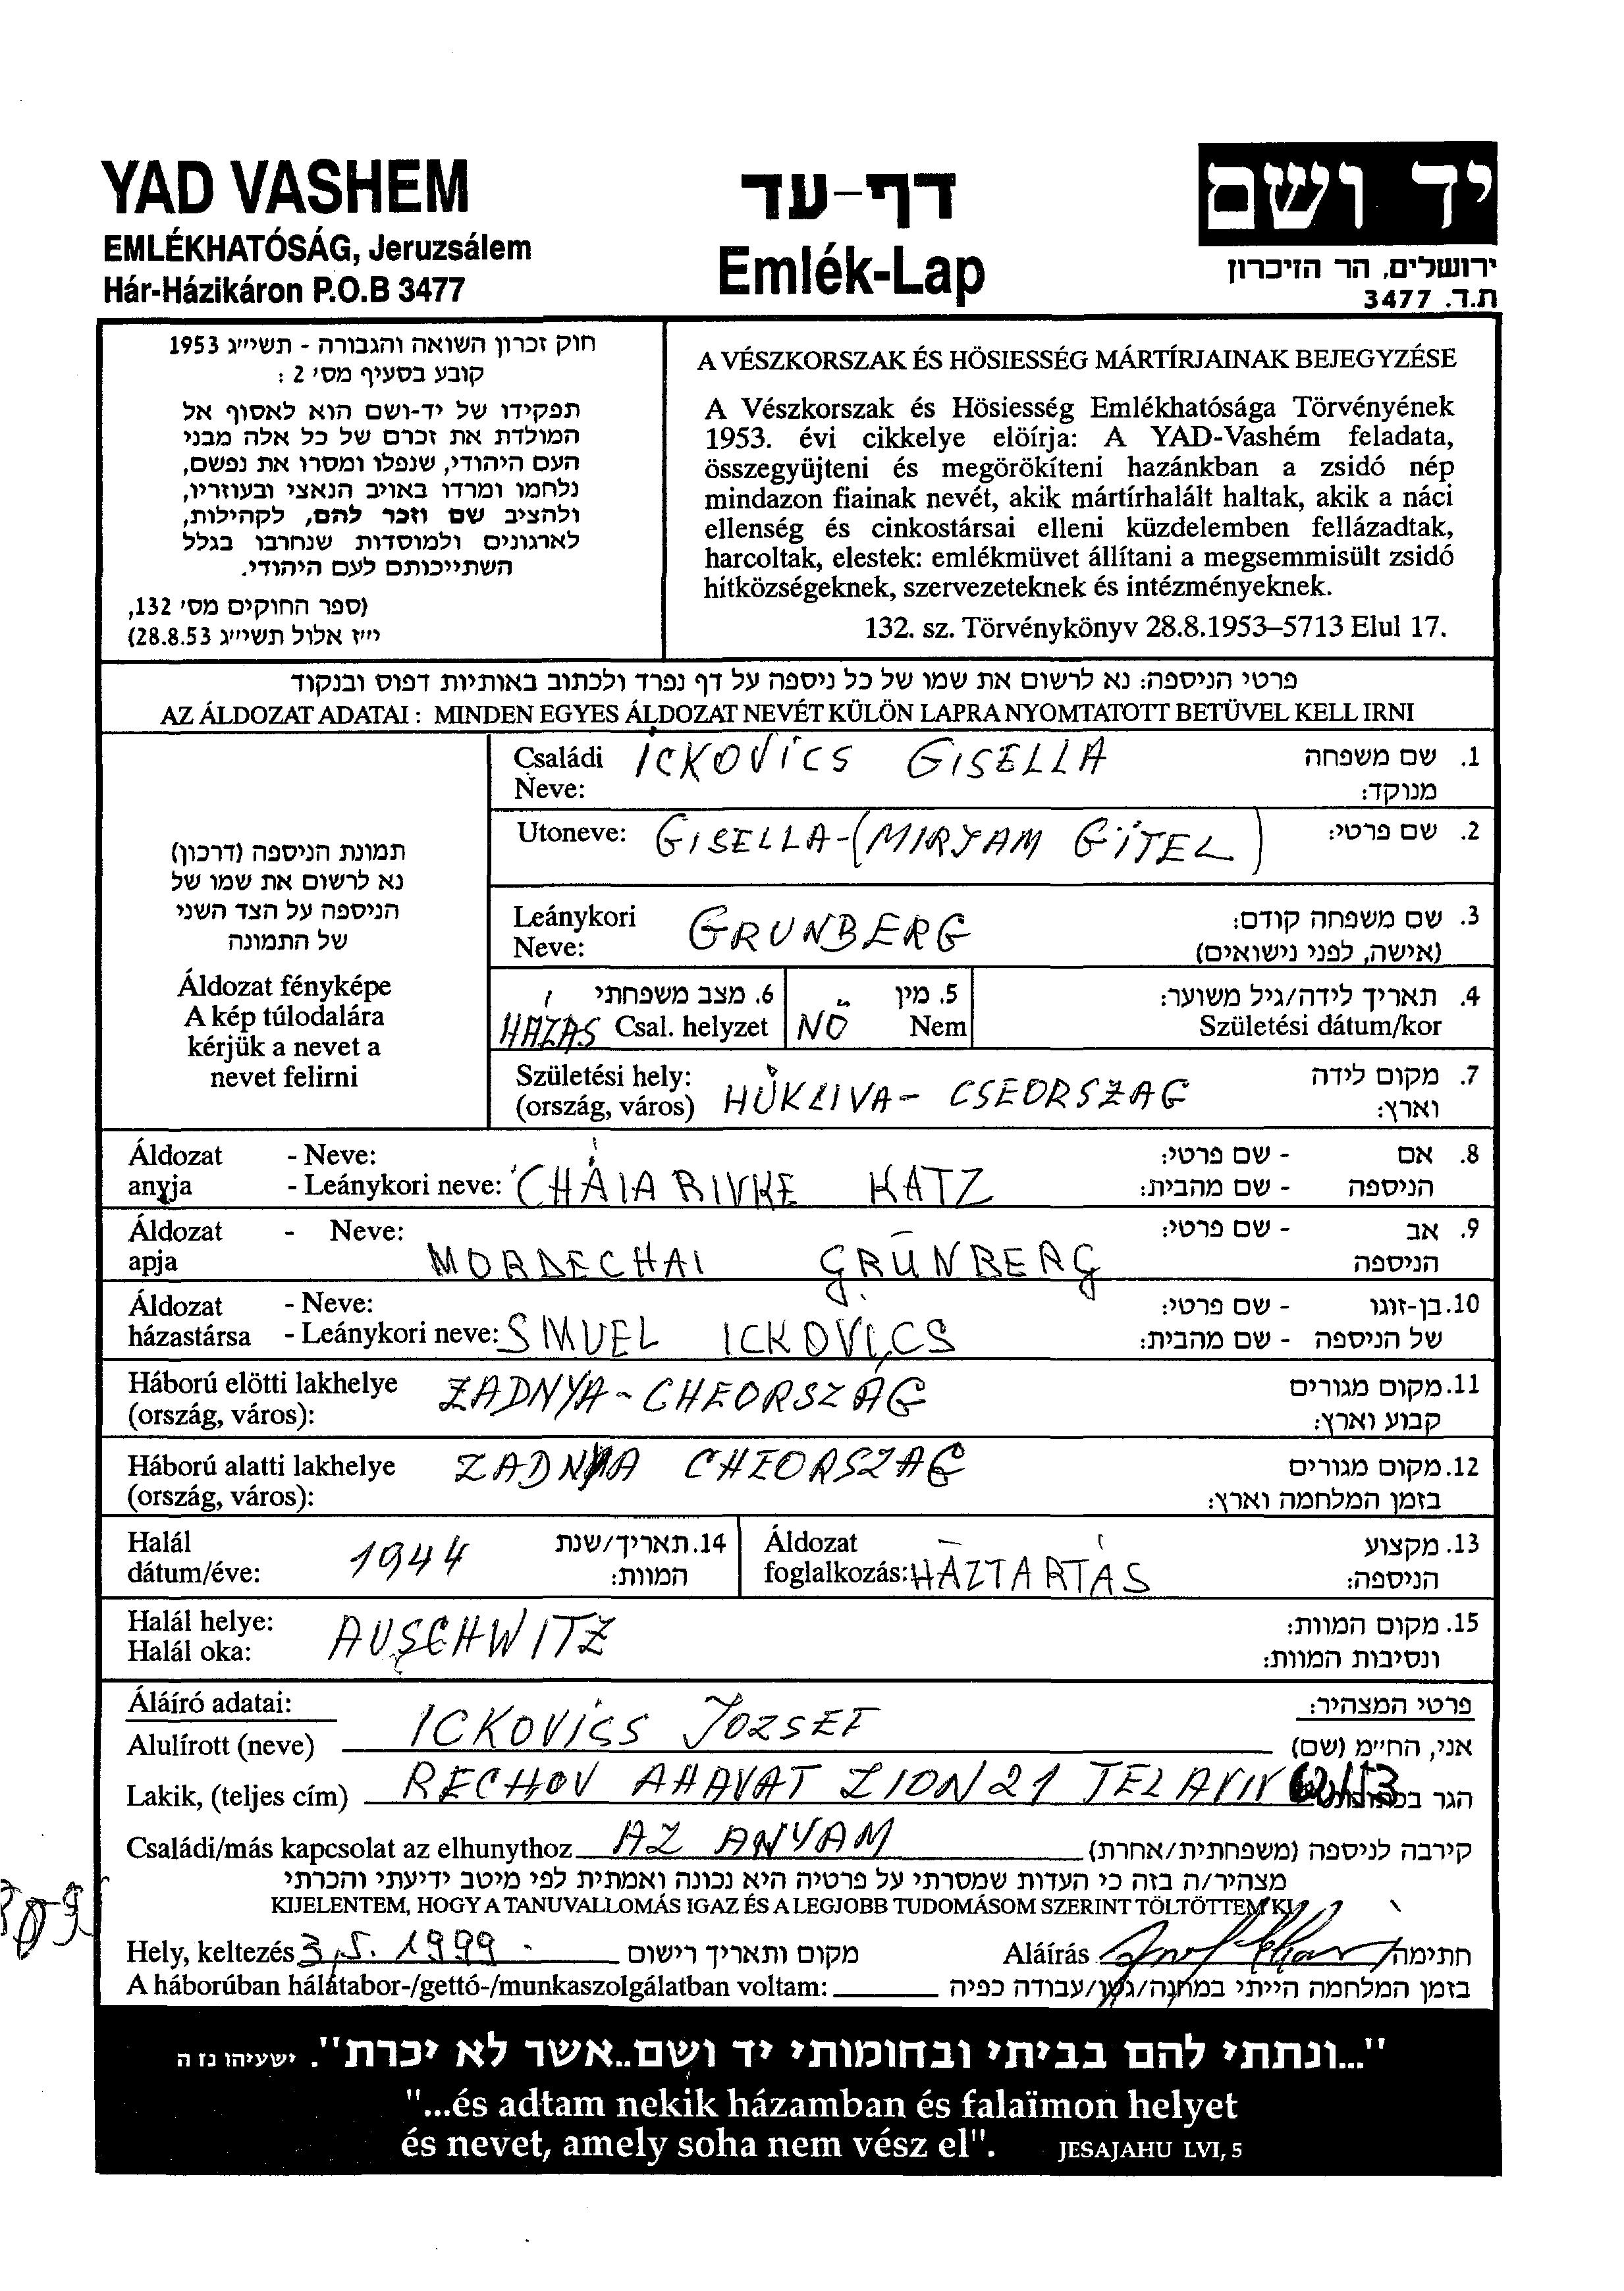 YAD VASHEM
EMLÉKHATÓSÁG, Jeruzsálem
Hár-Házikáron P.O.B 3477
דף-עד
Emlék-Lap
יד ושם
ירושלים, הר הזיכרון
ת.ד. 3477
חוק זכרון השואה והגבורה - תשי״ג 1953
קובע בסעיף מס׳ 2 :
תפקידו של יד-ושם הוא לאסוף אל
המולדת את זכרם של כל אלה מבני
העם היהודי, שנפלו ומסרו את נפשם,
נלחמו ומרדו באויב הנאצי ובעוזריו,
ולהציב שם וזכר להם, לקהילות,
לארגונים ולמוסדות שנחרבו בגלל
השתייכותם לעם היהודי.
(ספר החוקים מס׳ 132,
י״ז אלול תשי״ג 28.8.53)
A VÉSZKORSZAK ÉS HÖSIESSÉG MÁRTÍRJAINAK BEJEGYZÉSE
A Vészkorszak és Hösiesség Emlékhatósága Törvényének
1953. évi cikkelye elöírja: A YAD-Vashém feladata,
összegyüjteni és megörökíteni hazánkban a zsidó nép
mindazon fiainak nevét, akik mártírhalált haltak, akik a náci
ellenség és cinkostársai elleni küzdelemben fellázadtak,
harcoltak, elestek: emlékmüvet állítani a megsemmisült zsidó
hitközségeknek, szervezeteknek és intézményeknek.
132. sz. Törvénykönyv 28.8.1953–5713 Elul 17.
פרטי הניספה: נא לרשום את שמו של כל ניספה על דף נפרד ולכתוב באותיות דפוס ובנקוד
AZ ÁLDOZAT ADATAI : MINDEN EGYES ÁLDOZAT NEVÉT KÜLÖN LAPRA NYOMTATOTT BETÜVEL KELL IRNI
תמונת הניספה (דרכון)
נא לרשום את שמו של
הניספה על הצד השני
של התמונה
Áldozat fényképe
A kép túlodalára
kérjük a nevet a
nevet felirni
Családi ICKOVICS GISELLA 1. שם משפחה
Neve: מנוקד:
Utoneve: GISELLA-(MIRJAM GITEL) 2. שם פרטי:
Leánykori GRUNBERG 3. שם משפחה קודם:
Neve: (אישה, לפני נישואים)
6. מצב משפחתי 5. מין 4. תאריך לידה/גיל משוער:
HAZAS Csal. helyzet NŐ Nem Születési dátum/kor
Születési hely: 7. מקום לידה
(ország, város) HÚKLIVA- CSEORSZAG וארץ:
Áldozat - Neve: 8. אם - שם פרטי:
anyja - Leánykori neve: CHÁIA RIVKE KATZ הניספה - שם מהבית:
Áldozat - Neve: 9. אב - שם פרטי:
apja MORDECHAI GRÜNBERG הניספה
Áldozat - Neve: 10. בן-זוגו - שם פרטי:
házastársa - Leánykori neve: SMUEL ICKOVICS של הניספה - שם מהבית:
Háború elötti lakhelye ZADNYA-CHEORSZÁG 11. מקום מגורים
(ország, város): קבוע וארץ:
Háború alatti lakhelye ZADNYA CHEORSZAG 12. מקום מגורים
(ország, város): בזמן המלחמה וארץ:
Halál 1944 14. תאריך/שנת Áldozat 13. מקצוע
dátum/éve: המוות: foglalkozás: HAZTARTÁS הניספה:
Halál helye: AUSCHWITZ 15. מקום המוות:
Halál oka: ונסיבות המוות:
Áláíró adatai: פרטי המצהיר:
Alulírott (neve) ICKOVICS JOZSEF אני, החי״מ (שם)
Lakik, (teljes cím) RECHOV AHAVAT ZION 21 TEL AVIV הגר
Családi/más kapcsolat az elhunythoz AZ ANYAM קירבה לניספה (משפחתית/אחרת)
מצהיר/ה בזה כי העדות שמסרתי על פרטיה היא נכונה ואמתית לפי מיטב ידיעתי והכרתי
KIJELENTEM, HOGY A TANUVALLOMÁS IGAZ ÉS A LEGJOBB TUDOMÁSOM SZERINT TÖLTÖTTEM KI
Hely, keltezés 3.5.1999 מקום ותאריך רישום Aláírás חתימה
A háborúban hálátabor-/gettó-/munkaszolgálatban voltam: בזמן המלחמה הייתי במחנה/גטו/עבודה כפיה
"...ונתתי להם בביתי ובחומותי יד ושם..אשר לא יכרת". ישעיהו נז ה
"...és adtam nekik házamban és falaïmon helyet
és nevet, amely soha nem vész el". JESAJAHU LVI, 5